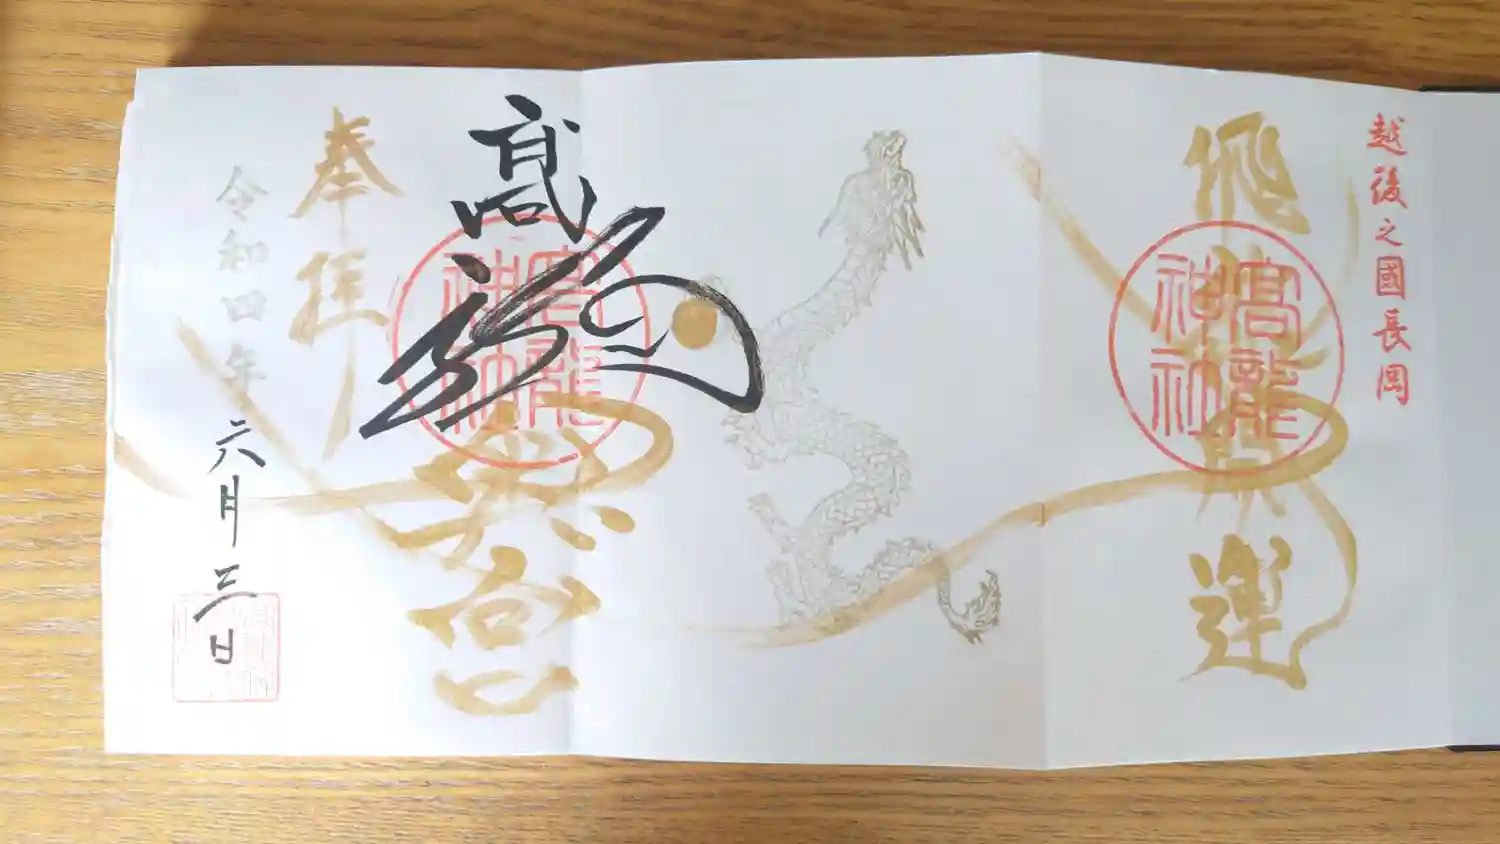 越後之國長岡
飛
運
高龍神社
高龍
宮
高龍神社
奉拝
令和四年
六月三日